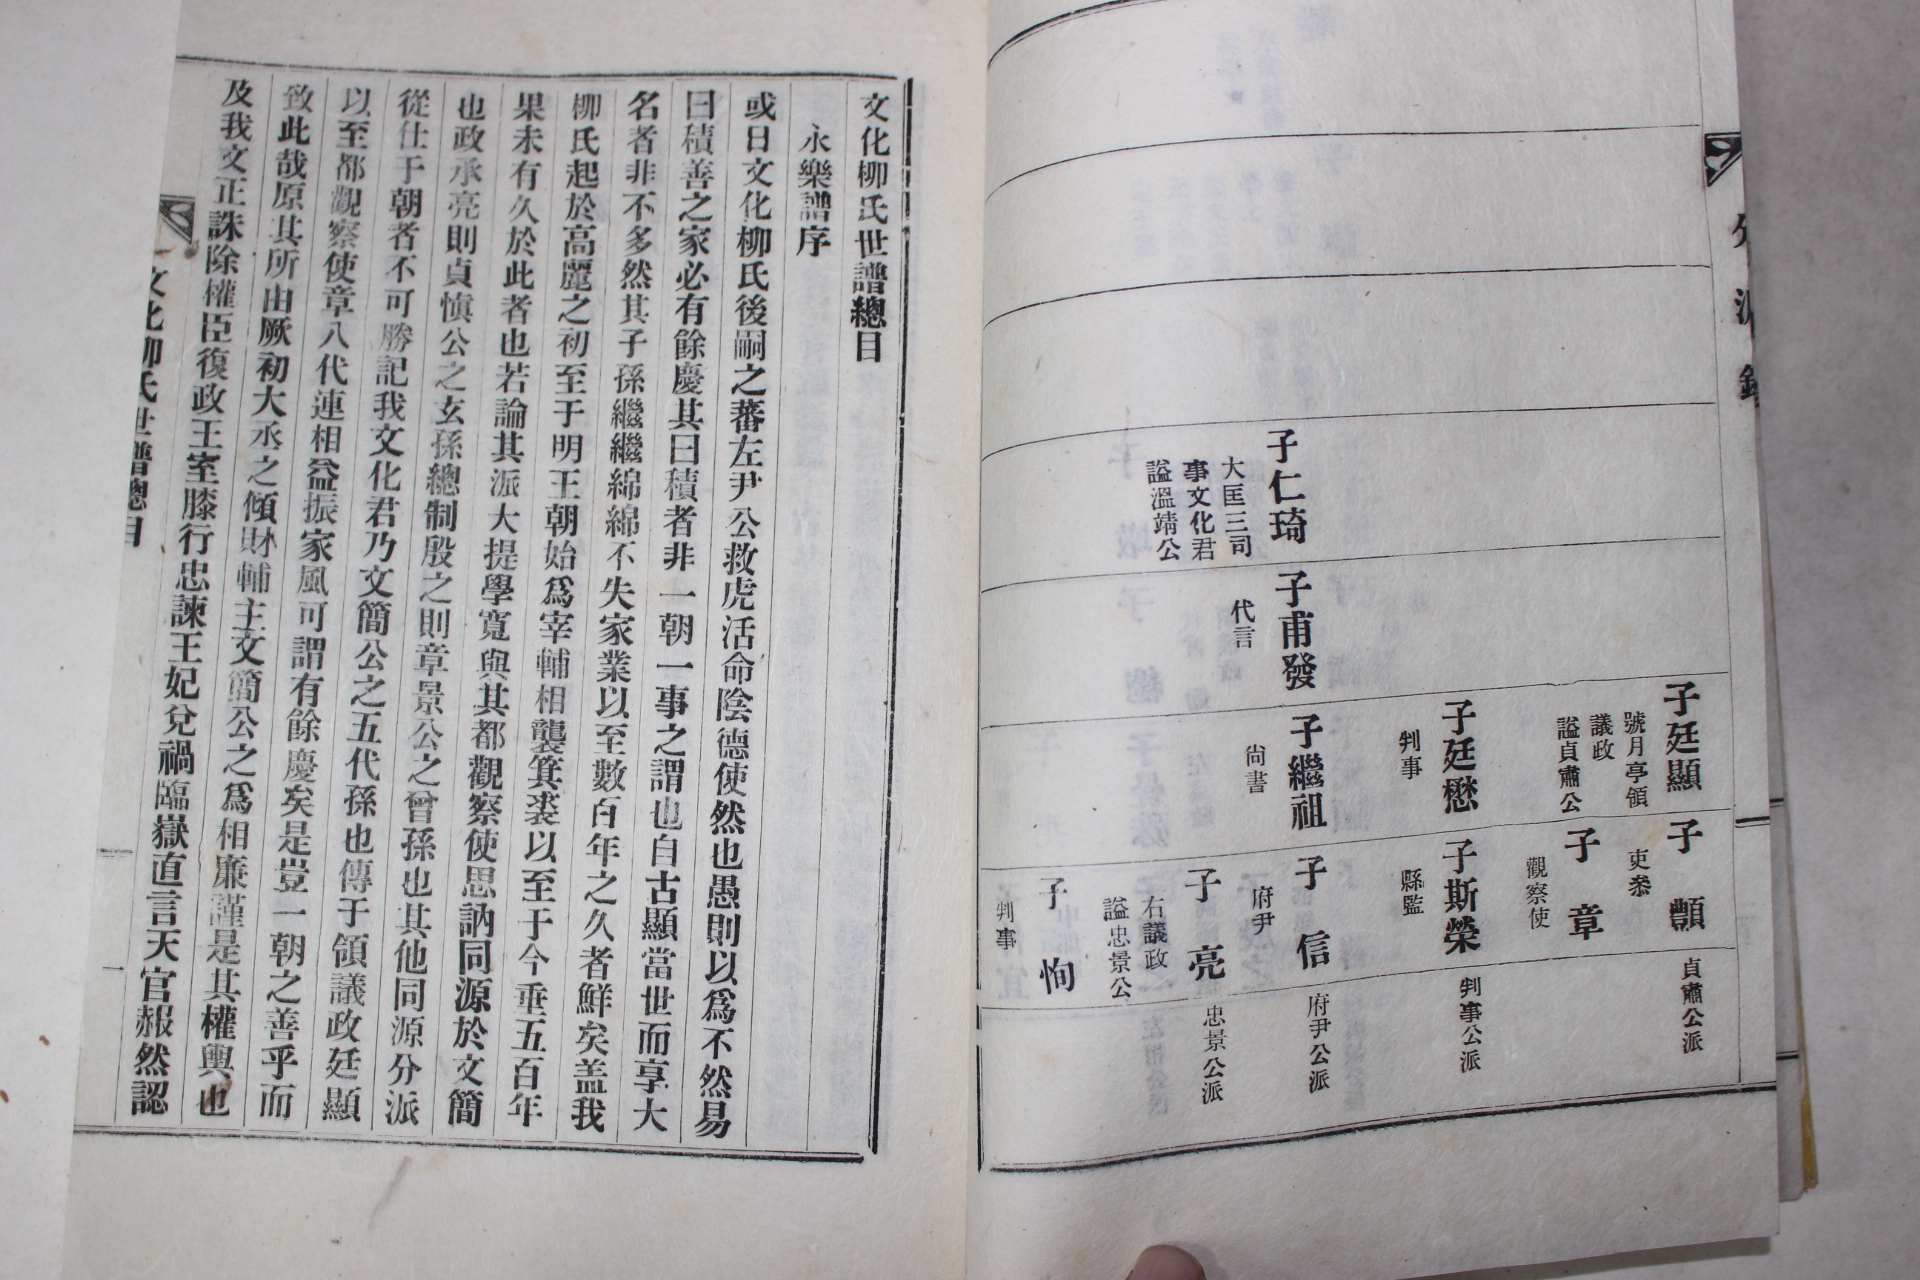 子仁琦
大匡三司
事文化君
謚溫靖公
子甫發
代言
子廷顯
號月亭領
議政
謚貞肅公
子廷懋
判事
子繼祖
尙書
子顫
吏叅
子章
觀察使
子斯榮
縣監
子信
府尹
子亮
右議政
謚忠景公
子恂
判事
貞肅公派
判事公派
府尹公派
忠景公派
文化柳氏世譜總目
永樂譜序
或曰文化柳氏後嗣之蕃左尹公救虎活命陰德使然也愚則以爲不然易
曰積善之家必有餘慶其曰積者非一朝一事之謂也自古顯當世而享大
名者非不多然其子孫繼繼綿綿不失家業以至數百年之久者鮮矣盖我
柳氏起於高麗之初至于明王朝始爲宰輔相襲箕裘以至于今垂五百年
果未有久於此者也若論其派大提學寬與其都觀察使思訥同源於文簡
也政承亮則貞愼公之玄孫總制殷之則章景公之曾孫也其他同源分派
從仕于朝者不可勝記我文化君乃文簡公之五代孫也傳于領議政廷顯
以至都觀察使章八代連相益振家風可謂有餘慶矣是豈一朝之善乎而
致此哉原其所由厥初大丞之傾財輔主文簡公之爲相廉謹是其權輿也
及我文正誅除權臣復政王室膝行忠諫王妃兌禍臨嶽直言天官赧然認
文化柳氏世譜總目
一